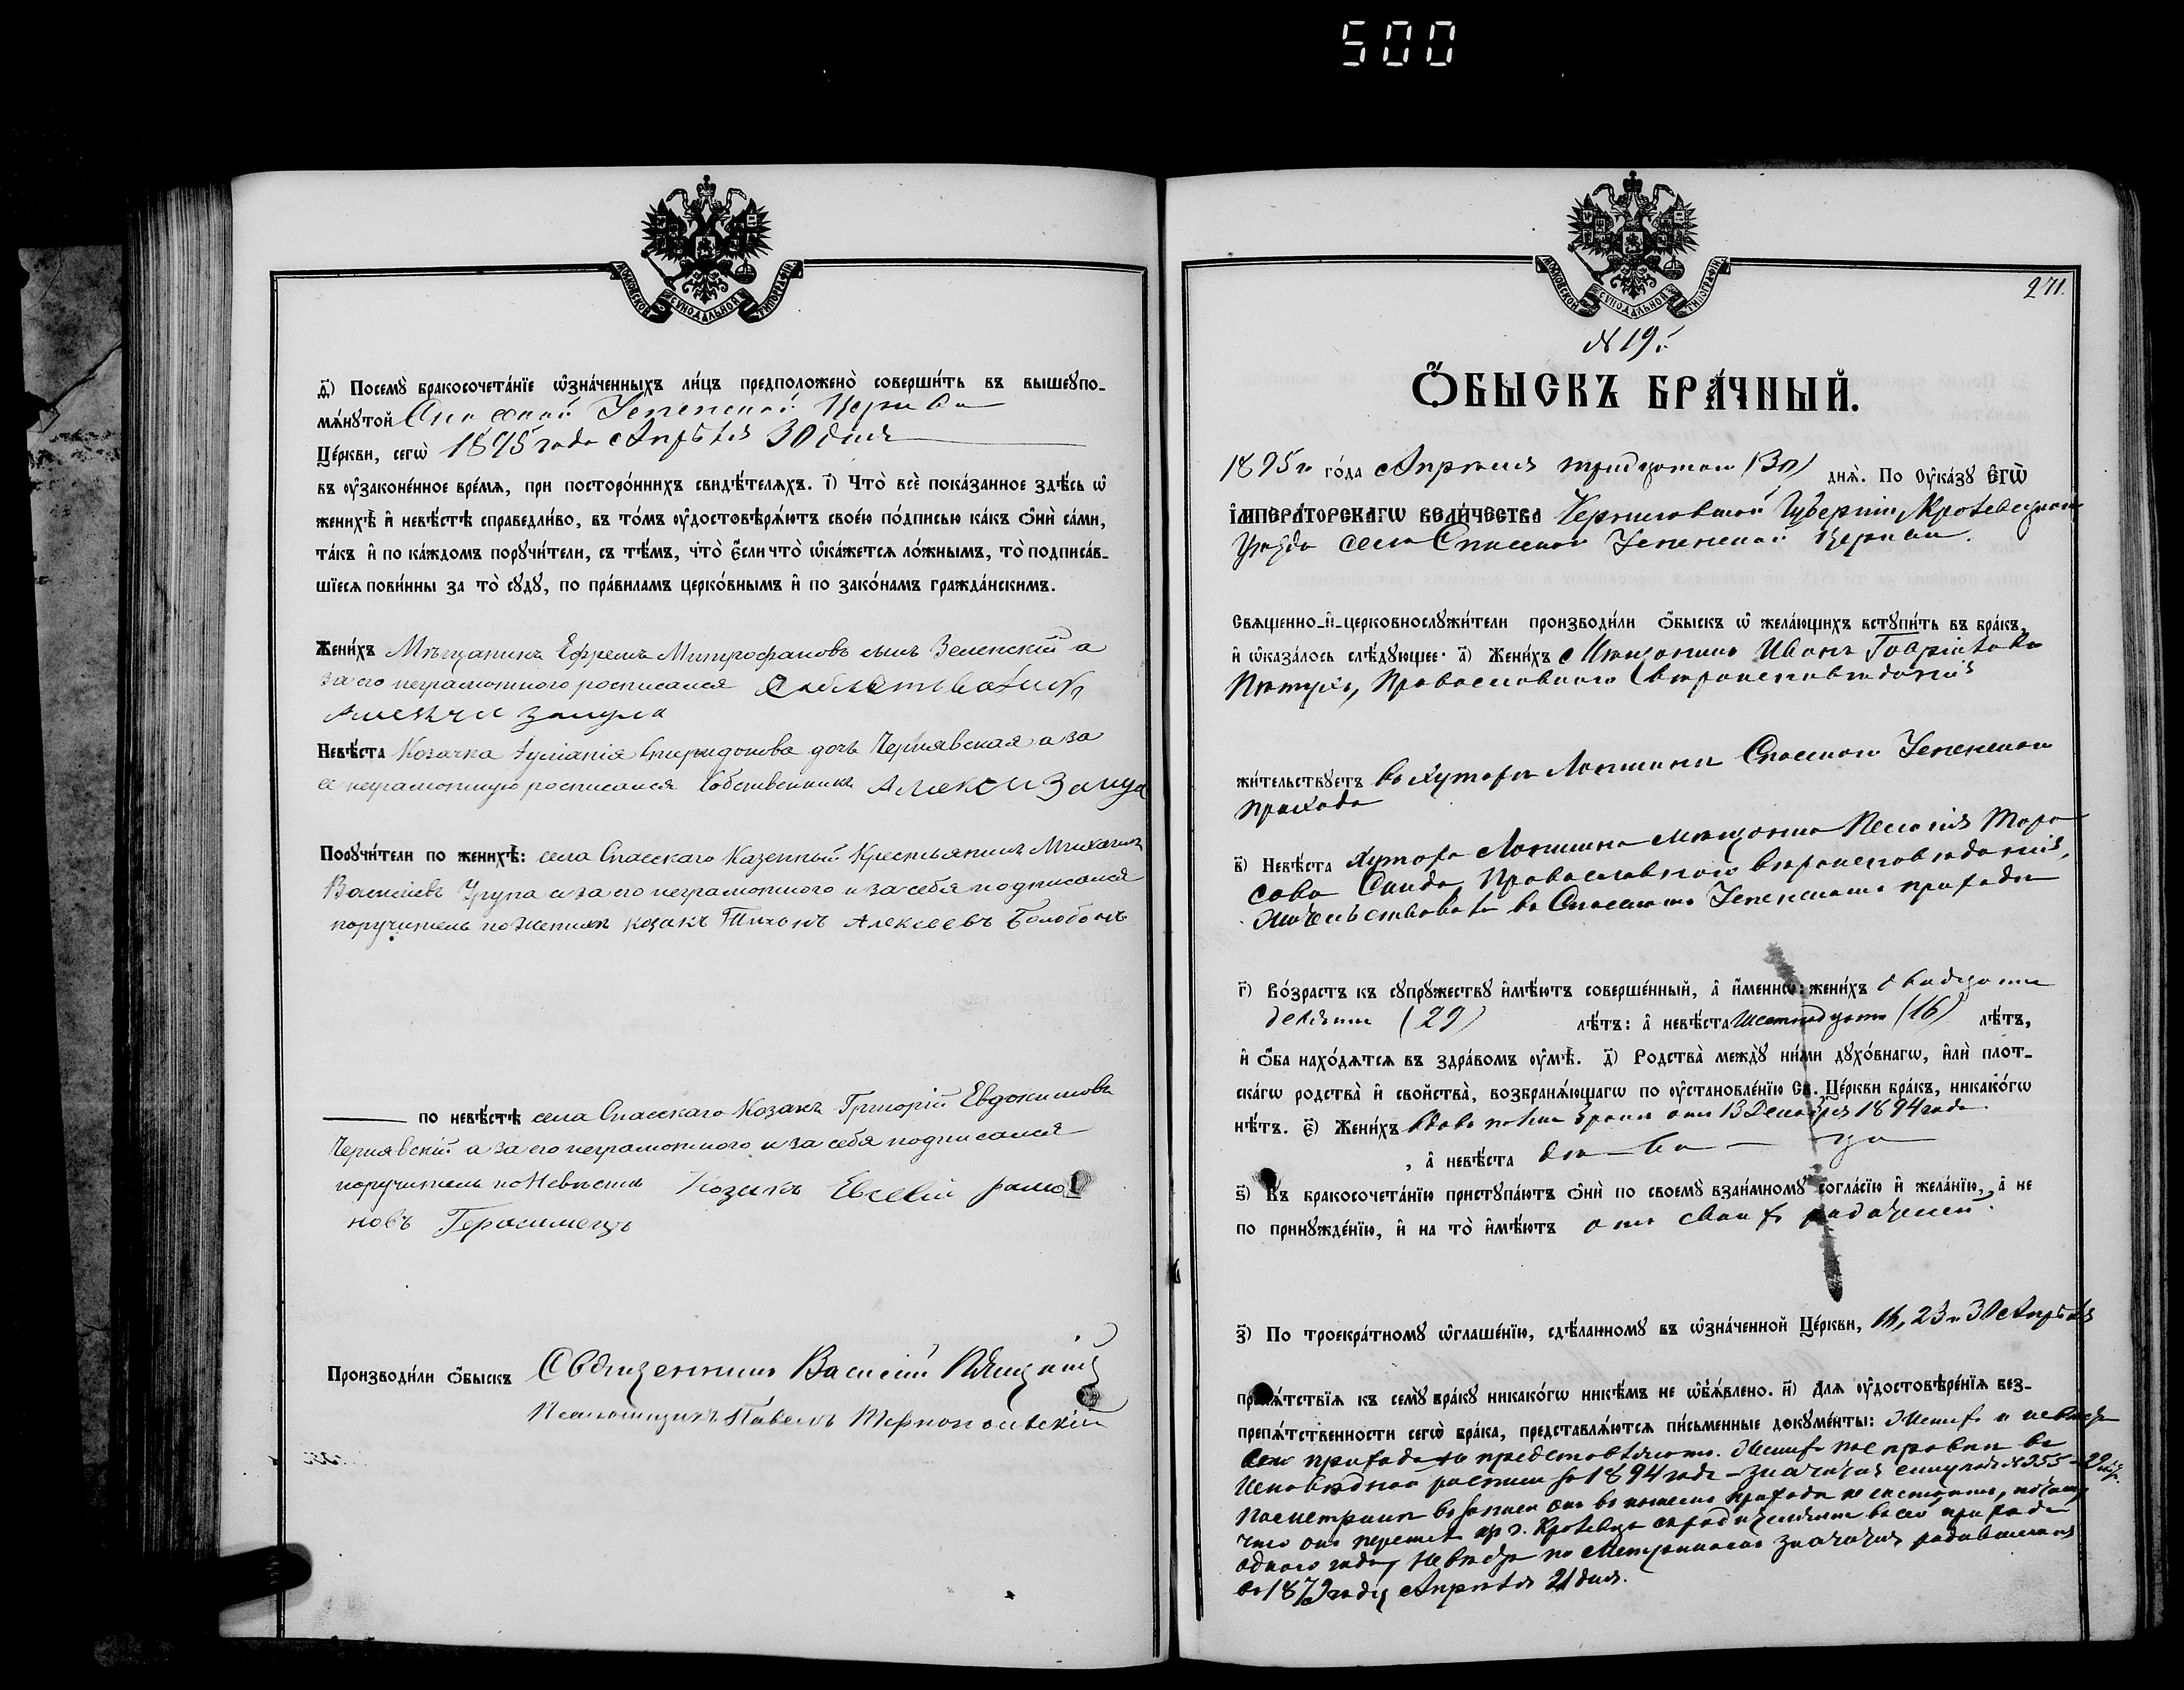 500
МОСКОВСКОЙ СУНОДАЛЬНОЙ ТИПОГРАФІИ
д҃і) Посемꙋ̀ бракосочета́нїе ѡ҆зна́ченныхъ ли́цъ предположено̀ соверши́ть въ вышеꙋпо-
мѧ́нꙋтой Спасской Успенской Церкви
Це́ркви, сегѡ̀ 1895 года Апрѣля 30 дня
въ ᲂу҆законе́нное вре́мѧ, при посторо́ннихъ свидѣ́телѧхъ. і҃) Что̀ всѐ пока́занное здѣ́сь ѡ҆
женихѣ̀ и҆ невѣ́стѣ справедли́во, въ то́мъ ᲂу҆достовѣрѧ́ютъ свое́ю по́дписью ка́къ ѻ҆нѝ са́ми,
та́къ и҆ по ка́ждомъ порꙋчи́тели, съ тѣ́мъ, что̀ є҆́сли что̀ ѡ҆ка́жетсѧ ло́жнымъ, то̀ подписа́в-
шїесѧ пови́нны за то̀ сꙋдꙋ̀, по пра́виламъ церко́внымъ и҆ по зако́намъ гражда́нскимъ.
Жени́хъ Мѣщанинъ Ефремъ Митрофановъ сынъ Зеленскій а
за его неграмотного росписался
Алексѣй
Невѣ́ста Козачка Спиридонова дочь Чернявская а за
ее неграмотную росписался Собственникъ Алексей
Порꙋчи́тели по женихѣ̀: села Спасскаго Казенный Крестьянинъ Михаилъ
Василіевъ а за его неграмотного и за себя подписался
поручитель по Женихѣ козакъ Тихонъ Алексеевъ
по невѣ́стѣ села Спасскаго Козакъ Григорій Евдокимовъ
Чернявскій а за его неграмотного и за себя подписался
поручитель по Невѣстѣ Козакъ Евсевій рома
новъ Герасимецъ
Производи́ли ѻ҆́быскъ Священникъ Василій
Псаломщикъ Павелъ Тернопольскій
МОСКОВСКОЙ СУНОДАЛЬНОЙ ТИПОГРАФІИ
271.
№ 19.
Ѻ҆́БЫСКЪ БРА́ЧНЫЙ.
1895 го́да Апрѣля тридцатаго (30) днѧ̀. По ᲂу҆ка́зꙋ Є҆ГѠ̀
І҆МПЕРА́ТОРСКАГѠ ВЕЛИ́ЧЕСТВА Черниговской Губерніи, Кролевецкаго
Уѣзда села Спасскаго Успенской Церкви.
Свѧщенно-и҆-церковнослꙋжи́тели производи́ли ѻ҆́быскъ ѡ҆ жела́ющихъ встꙋпи́ть въ бра́къ,
и҆ ѡ҆каза́лось слѣ́дꙋющее: а҃) Жени́хъ Мѣщанинъ Иванъ Гавріиловъ
Пѣтухъ, Православнаго Вѣроисповѣданія
жи́тельствꙋетъ въ Хуторѣ Спасской Успенской
прихода
в҃) Невѣ́ста Хутора Мѣщанка Тара
сова Православного вѣроисповѣданія,
въ Спасскомъ Успенскомъ приходѣ
г҃) Во́зрастъ къ сꙋпрꙋ́жествꙋ и҆мѣ́ютъ соверше́нный, а҆ и҆́меннѡ: жени́хъ двадцати
девяти (29) лѣ́тъ: а҆ невѣ́ста Шестнадцати (16) лѣ́тъ,
и҆ ѻ҆́ба нахо́дѧтсѧ въ здра́вомъ ᲂу҆мѣ̀. д҃) Родства̀ междꙋ̀ ни́ми дꙋхо́внагѡ, и҆лѝ плот-
ска́гѡ родства̀ и҆ сво́йства, возбранѧ́ющагѡ по ᲂу҆становле́нїю Св. Це́ркви бра́къ, никако́гѡ
нѣ́тъ. є҃) Жени́хъ вдовъ по 1мъ бракѣ отъ 13 Декабря 1894 года
, а҆ невѣ́ста дѣ — ви — ца
ѕ҃) Къ бракосочета́нїю пристꙋпа́ютъ ѻ҆нѝ по своемꙋ̀ взаи́мномꙋ согла́сїю и҆ жела́нїю, а҆ не
по принꙋжде́нїю, и҆ на то̀ и҆мѣ́ютъ отъ своихъ родителей.
з҃) По троекра́тномꙋ ѡ҆глаше́нїю, сдѣ́ланномꙋ въ ѡ҆зна́ченной Це́ркви, 16, 23 и 30 Апрѣля
препѧ́тствїѧ къ семꙋ̀ бра́кꙋ никако́гѡ никѣ́мъ не ѡ҆б̾ѧ́влено. и҃) Длѧ ᲂу҆достовѣре́нїѧ без-
препѧ́тственности сегѡ̀ бра́ка, представлѧ́ютсѧ пи́сьменные докꙋме́нты: Женихъ и невѣста
сего прихода представляютъ. Женихъ по справкѣ въ
Исповѣдной росписи за 1894 годъ значится подъ № 255 — 29 лѣтъ.
по метрикѣ въ записи онъ въ нашемъ приходѣ не состоитъ, потому
что онъ перешелъ изъ г. Кролевца съ родителями въ сей приходъ
одного года, Невѣста по Метрикамъ значится родившеюся
въ 1879 году Апрѣля 21 дня.